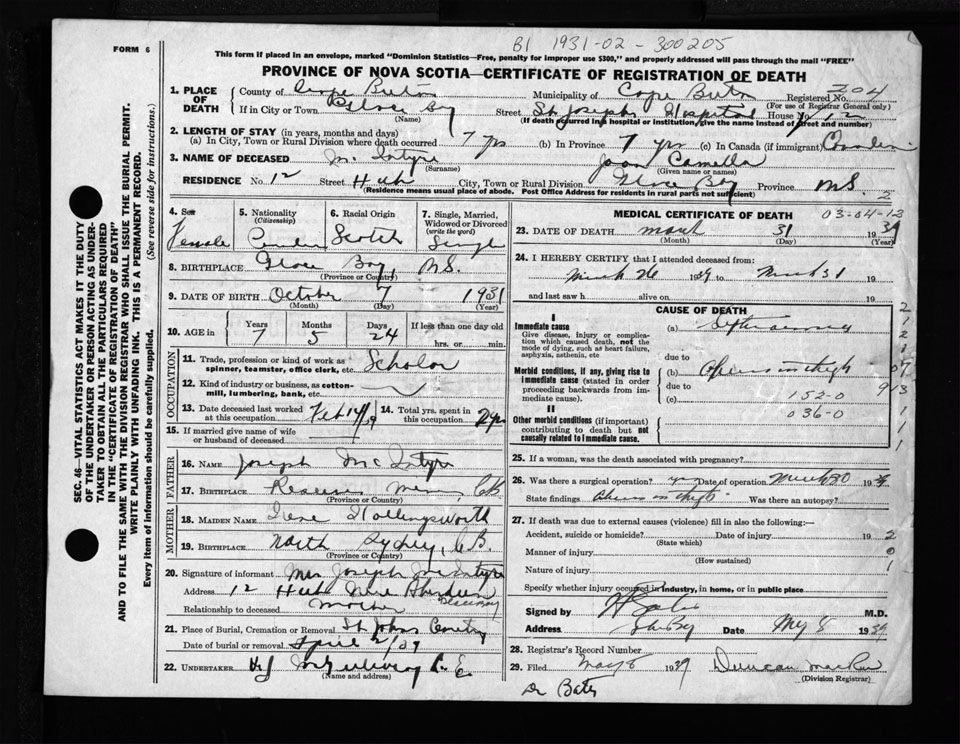 B1 1931-02-300205
FORM 6
This form if placed in an envelope, marked "Dominion Statistics—Free, penalty for improper use $300," and properly addressed will pass through the mail "FREE"
PROVINCE OF NOVA SCOTIA—CERTIFICATE OF REGISTRATION OF DEATH
SEC. 46—VITAL STATISTICS ACT MAKES IT THE DUTY
OF THE UNDERTAKER OR PERSON ACTING AS UNDER-
TAKER TO OBTAIN ALL THE PARTICULARS REQUIRED
IN THE "CERTIFICATE OF REGISTRATION OF DEATH"
AND TO FILE THE SAME WITH THE DIVISION REGISTRAR WHO SHALL ISSUE THE BURIAL PERMIT.
WRITE PLAINLY WITH UNFADING INK. THIS IS A PERMANENT RECORD.
Every item of information should be carefully supplied. (See reverse side for instructions.)
1. PLACE OF DEATH
County of Cape Breton Municipality of Cape Breton Registered No. 204
(For use of Registrar General only)
If in City or Town Glace Bay Street St Josephs Hospital House No
(Name) (If death occurred in a hospital or institution, give the name instead of street and number)
2. LENGTH OF STAY (in years, months and days)
(a) In City, Town or Rural Division where death occurred 7 yrs (b) In Province 7 yrs (c) In Canada (if immigrant)
3. NAME OF DECEASED McIntyre Joan Camella
(Surname) (Given name or names)
RESIDENCE No. 12 Street Hub City, Town or Rural Division Glace Bay Province N.S.
(Residence means usual place of abode. Post Office Address for residents in rural parts not sufficient)
2
4. Sex
Female
5. Nationality
(Citizenship)
6. Racial Origin
Scotch
7. Single, Married,
Widowed or Divorced
(write the word)
Single
8. BIRTHPLACE Glace Bay, N.S.
(Province or Country)
9. DATE OF BIRTH October 7 1931
(Month) (Day) (Year)
10. AGE in Years Months Days If less than one day old
7 5 24 hrs. or min.
OCCUPATION
11. Trade, profession or kind of work as
spinner, teamster, office clerk, etc. Scholar
12. Kind of industry or business, as cotton-
mill, lumbering, bank, etc.
13. Date deceased last worked
at this occupation
14. Total yrs. spent in
this occupation 2 yrs
15. If married give name of wife
or husband of deceased
FATHER
16. NAME Joseph McIntyre
17. BIRTHPLACE Reserve Mines, CB
(Province or Country)
MOTHER
18. MAIDEN NAME Irene Hollingsworth
19. BIRTHPLACE North Sydney, C.B.
(Province or Country)
20. Signature of informant Mrs Joseph McIntyre
Address 12 Hub
Relationship to deceased Mother
21. Place of Burial, Cremation or Removal St Johns Cemetry
Date of burial or removal April 2/39
22. UNDERTAKER
(Name and address)
MEDICAL CERTIFICATE OF DEATH 03-04-12
23. DATE OF DEATH March 31 1939
(Month) (Day) (Year)
24. I HEREBY CERTIFY that I attended deceased from:
March 26 1939 to March 31 19
and last saw h alive on 19
CAUSE OF DEATH
I
Immediate cause
Give disease, injury or complication
which caused death, not the
mode of dying, such as heart failure,
asphyxia, asthenia, etc
(a)
due to
Morbid conditions, if any, giving rise to
immediate cause (stated in order
proceeding backwards from immediate
cause).
(b)
due to
(c) 152-0
036-0
II
Other morbid conditions (if important)
contributing to death but not
causally related to immediate cause.
25. If a woman, was the death associated with pregnancy?
26. Was there a surgical operation? yes Date of operation March 30 1939
State findings Was there an autopsy?
27. If death was due to external causes (violence) fill in also the following:—
Accident, suicide or homicide? Date of injury 19
(State which)
Manner of injury
(How sustained)
Nature of injury
Specify whether injury occurred in industry, in home, or in public place
Signed by M.D.
Address Date May 8 1939
28. Registrar's Record Number
29. Filed May 8 1939 Duncan
(Division Registrar)
Dr Bates